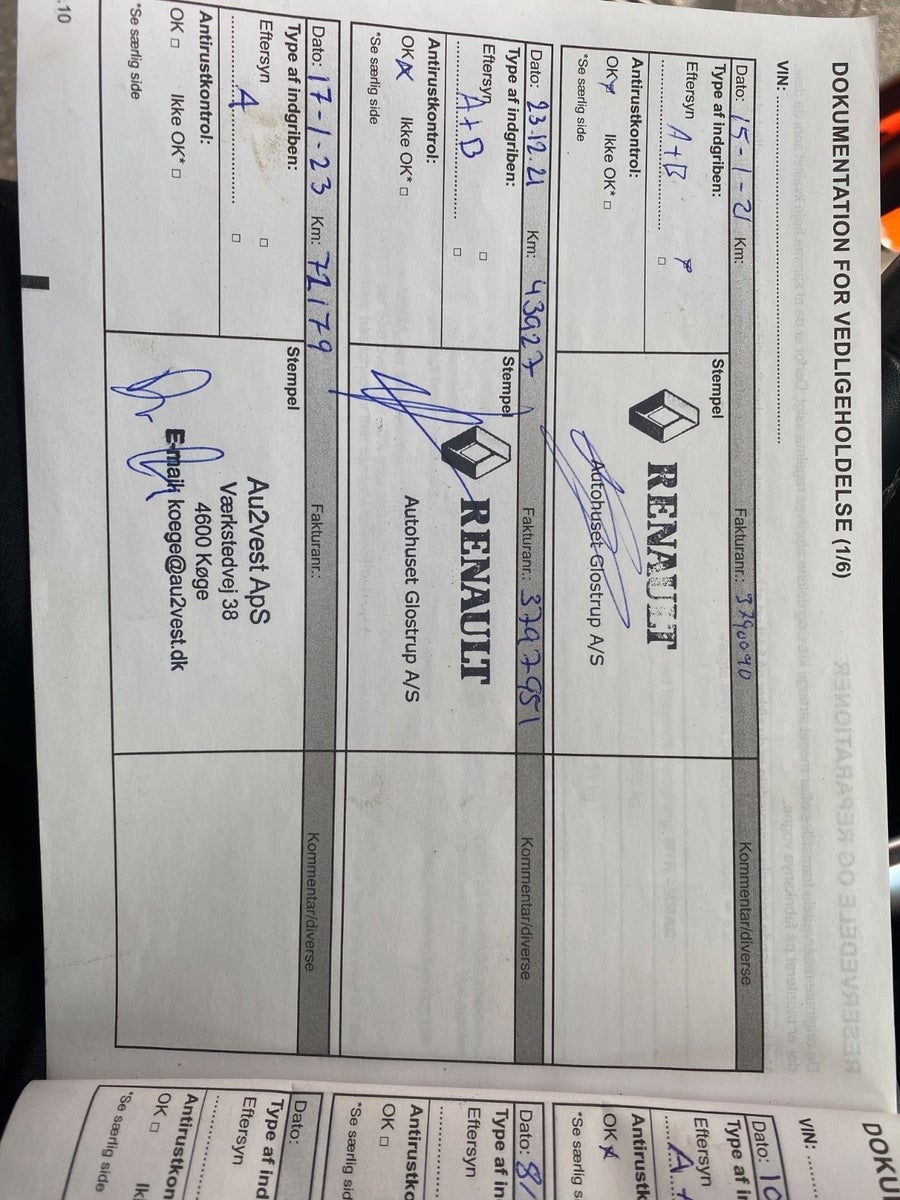 DOKUMENTATION FOR VEDLIGEHOLDELSE (1/6)
VIN:
Dato: 15-1-21 Km: Fakturanr.: 3790090 Kommentar/diverse
Type af indgriben: Stempel
Eftersyn
A+B
RENAULT
Autohuset Glostrup A/S
Antirustkontrol:
OK Ikke OK* □
*Se særlig side
Dato: 23.12.21 Km: 43927 Fakturanr.: 3797951 Kommentar/diverse
Type af indgriben: Stempel
Eftersyn □
A+B □
RENAULT
Autohuset Glostrup A/S
Antirustkontrol:
OK Ikke OK* □
*Se særlig side
Dato: 17-1-23 Km: 72179 Fakturanr.: Kommentar/diverse
Type af indgriben: Stempel
Eftersyn □
A □
Au2vest ApS
Værkstedvej 38
4600 Køge
E-mail: koege@au2vest.dk
Antirustkontrol:
OK □ Ikke OK* □
*Se særlig side
.10
RESERVEDELE OG REPARATIONER
DOKU
VIN:
Dato:
Type af in
Eftersyn
A
Antirustk
OK
*Se særlig s
Dato: 8/
Type af in
Eftersyn
Antirustko
OK □
*Se særlig sid
Dato:
Type af ind
Eftersyn
Antirustkon
OK □
*Se særlig side